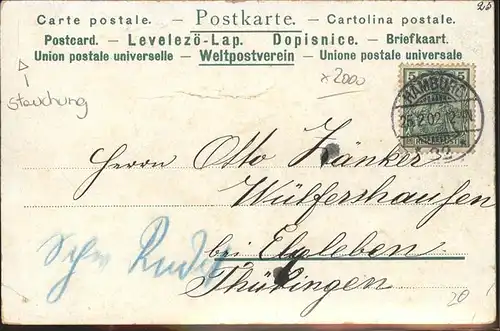 25
Carte postale. — Postkarte. — Cartolina postale.
Postcard. — Levelezö-Lap. Dopisnice. — Briefkaart.
Union postale universelle — Weltpostverein — Unione postale universale
Stauchung
x2000
5 5
HAMBURG
25.2.02.12-1N.
Herrn Otto Zänker
Wülfershausen
bei Elxleben
Thüringen
20